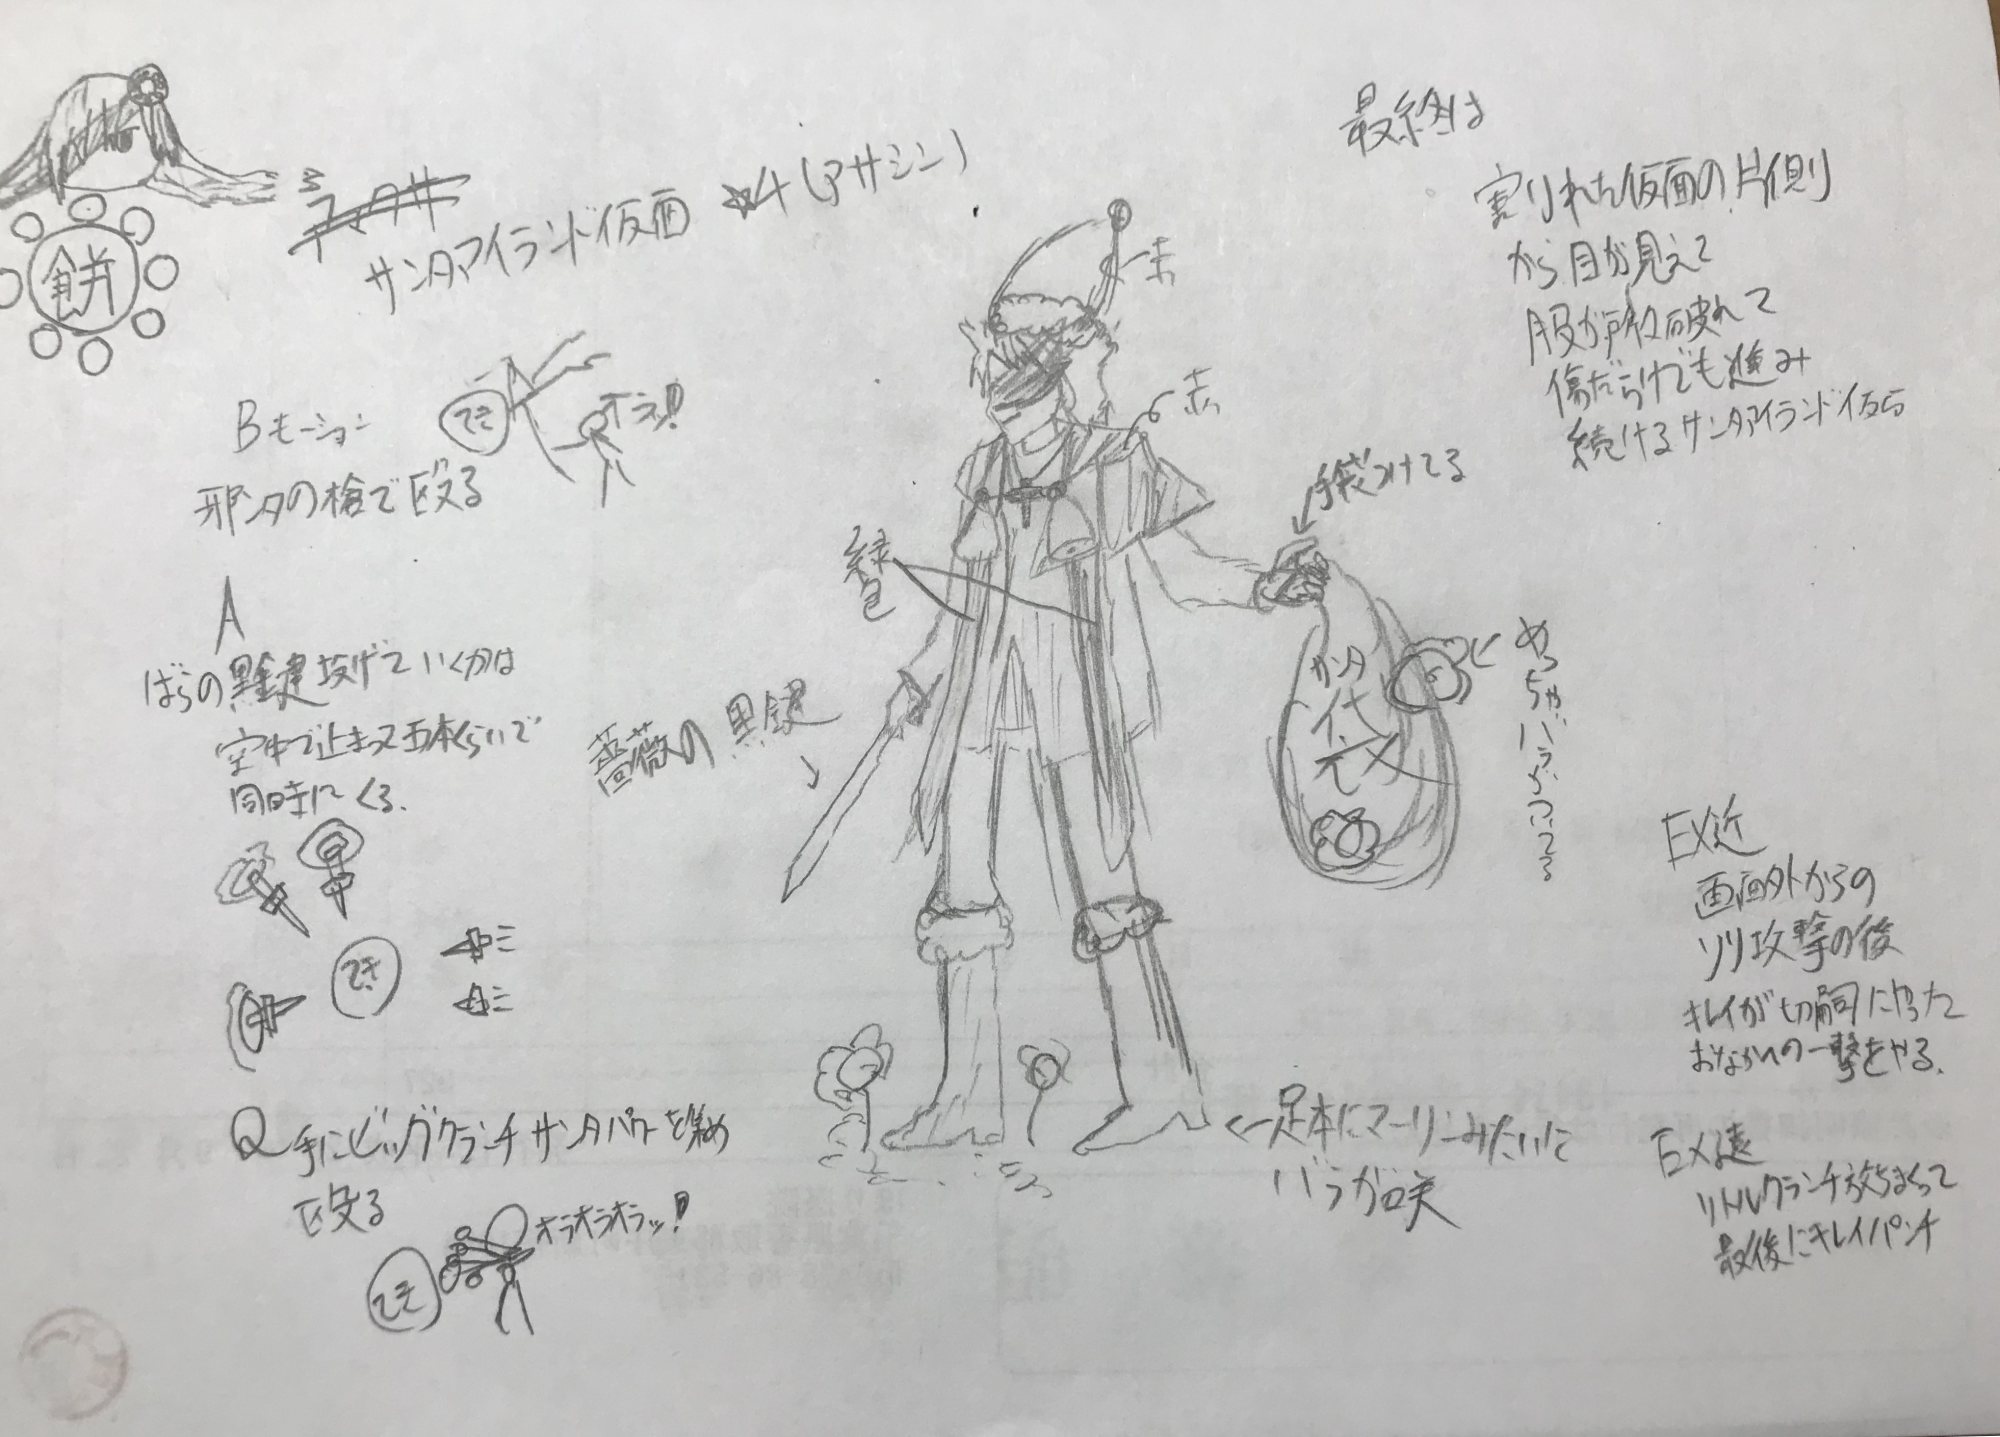 餅
サンタアイランド仮面 ☆4(アサシン)
Bモーション
てき
オラッ!
邪ンタの槍で殴る
A
ばらの黒鍵投げていくかは
空中で止まって五本くらいで
同時にくる.
てき
Q 手にビッグクランチサンタパワーを集め
殴る
てき
オラオラオラッ!
赤
赤
緑色
薔薇の黒鍵
手袋つけてる
サンタ
代
元
めっちゃバラがついてる
←足本にマーリンみたいに
バラが咲
最終は
割りれた仮面の片側
から目が見えて
服が所々破れて
傷だらけでも進み
続けるサンタアイランド仮面
EX近
画面外からの
ソリ攻撃の後
キレイが切嗣にやった
おなかへの一撃をやる.
EX遠
リトルクランチ放ちまくって
最後にキレイパンチ